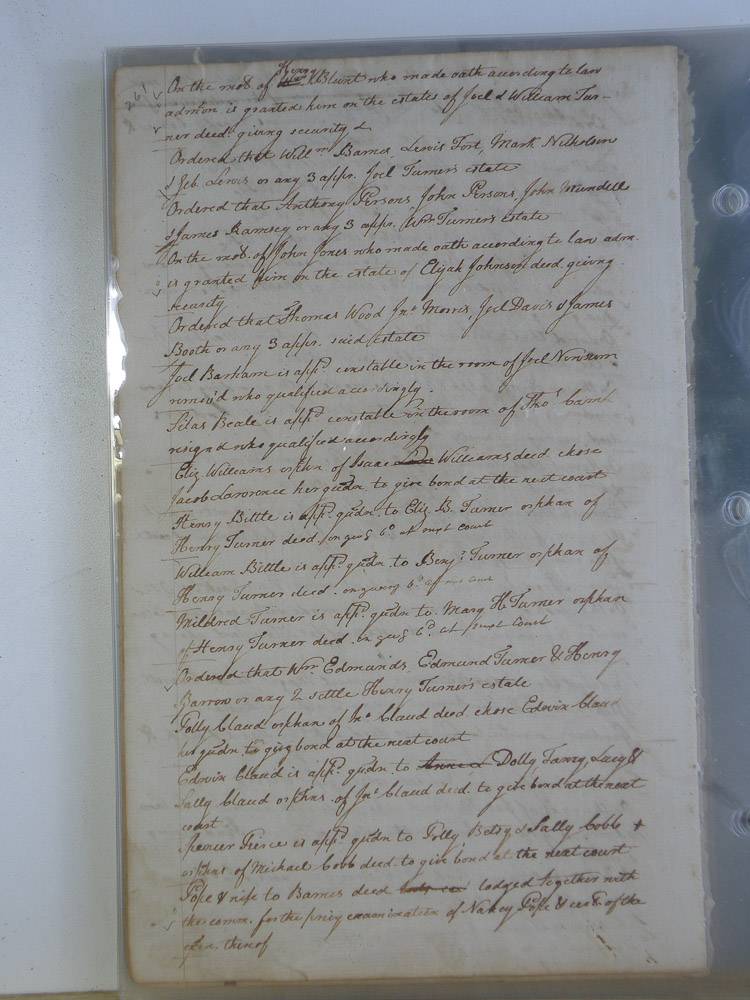 261
On the mo8 of Henry Blunt who made oath according to law
admon is granted him on the estates of Joel & William Tur-
ner deed. giving security &
Ordered that Willm Barnes Lewis Fort, Mark Nicholson
& Jeb. Lewis or any 3 appr. Joel Turner's estate
Ordered that Anthony Persons, John Persons, John Mundell
& James Ramsey or any 3 appr. Wm Turners Estate
On the mo8. of John Jones who made oath according to law adm.
is granted him on the estate of Elijah Johnson deed. giving
security
Ordered that Thomas Wood Jno Morris, Joel Davis & James
Booth or any 3 appr. said estate
Joel Barham is appd constable in the room of Joel Newsum
remov'd who qualified accordingly.
Silas Beale is appd constable in the room of Thos
resign'd who qualified accordingly
Eliz Williams orphn. of Isaac Williams deed chose
Jacob Lawrence her gudn. to give bond at the next court
Henry Bittle is appd gudn to Eliz B. Turner orphan of
Henry Turner deed. on givg bd. at next court
William Bittle is appd gudn to Benj. Turner orphan of
Henry Turner deed.
Mildred Turner is appd gudn to Mary H Turner orphan
of Henry Turner deed. on givg bd. at next court
Ordered that Wm Edmunds, Edmund Turner & Henry
Barrow or any 2 settle Henry Turner's estate
Polly Claud orphan of Jno Claud deed chose Edwin Claud
her gudn. to give bond at the next court
Edwin Claud is appd gudn to Dolly Tansy, Lucy &
Sally Claud orphns. of Jno Claud deed. to give bond at the next
court
Spencer Pierce is appd gudn to Polly Betsy & Sally Cobb
orphns of Michael Cobb deed to give bond at the next court
Pope & wife to Barnes deed lodged together with
the comn. for the privy examination of Nancy Pope & of the
thereof